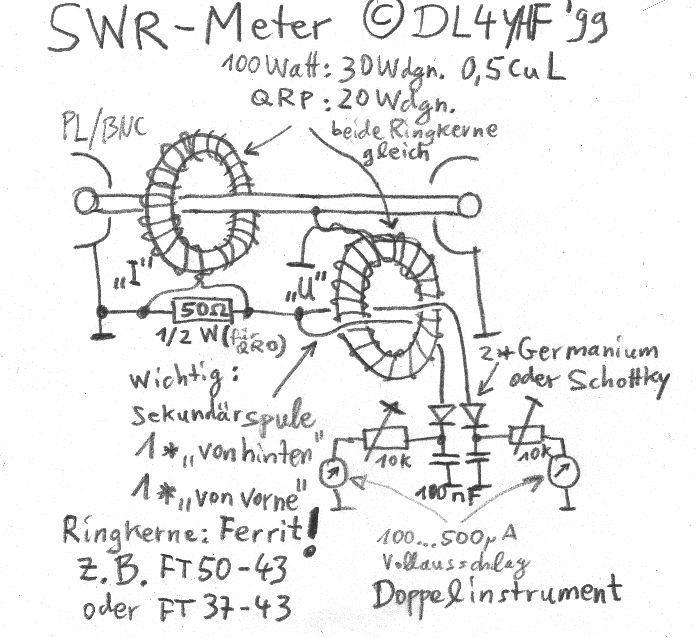 SWR-Meter © DL4YHF '99
100Watt: 30Wdgn. 0,5CuL
QRP: 20Wdgn.
PL/BNC
beide Ringkerne
gleich
„I"
„U"
50Ω
1/2 W (für
QRO)
2* Germanium
oder Schottky
Wichtig:
Sekundärspule
1*„von hinten"
1*„von vorne"
10k
10k
100nF
Ringkerne: Ferrit!
z.B. FT50-43
oder FT37-43
100...500µA
Vollausschlag
Doppelinstrument